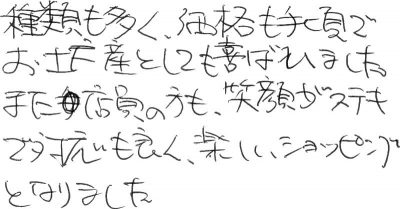 種類も多く、価格も手頃で
お土産としても喜ばれました。
また店員の方も、笑顔がステキ
で対応も良く、楽しいショッピング
となりました